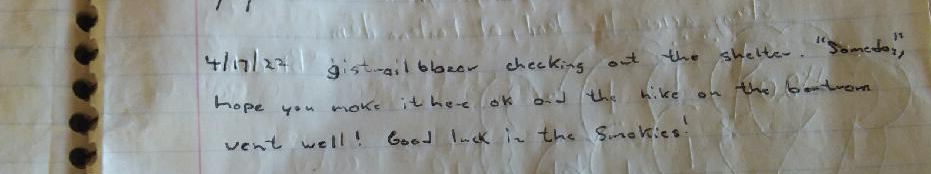 4/17/22 gistrail bbear checking out the shelter. "Someday,"
hope you make it here ok and the hike on the bartram
went well! Good luck in the Smokies!